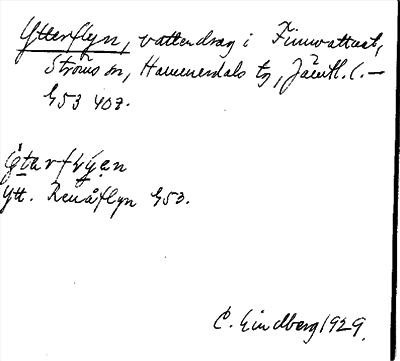 Ytterflyn, vattendrag i Finnvattnet,
Ströms sn, Hammerdals tg, Jämtl. l. —
G53 403.
Ytt. Renåflyn G53.
C. Lindberg 1929.